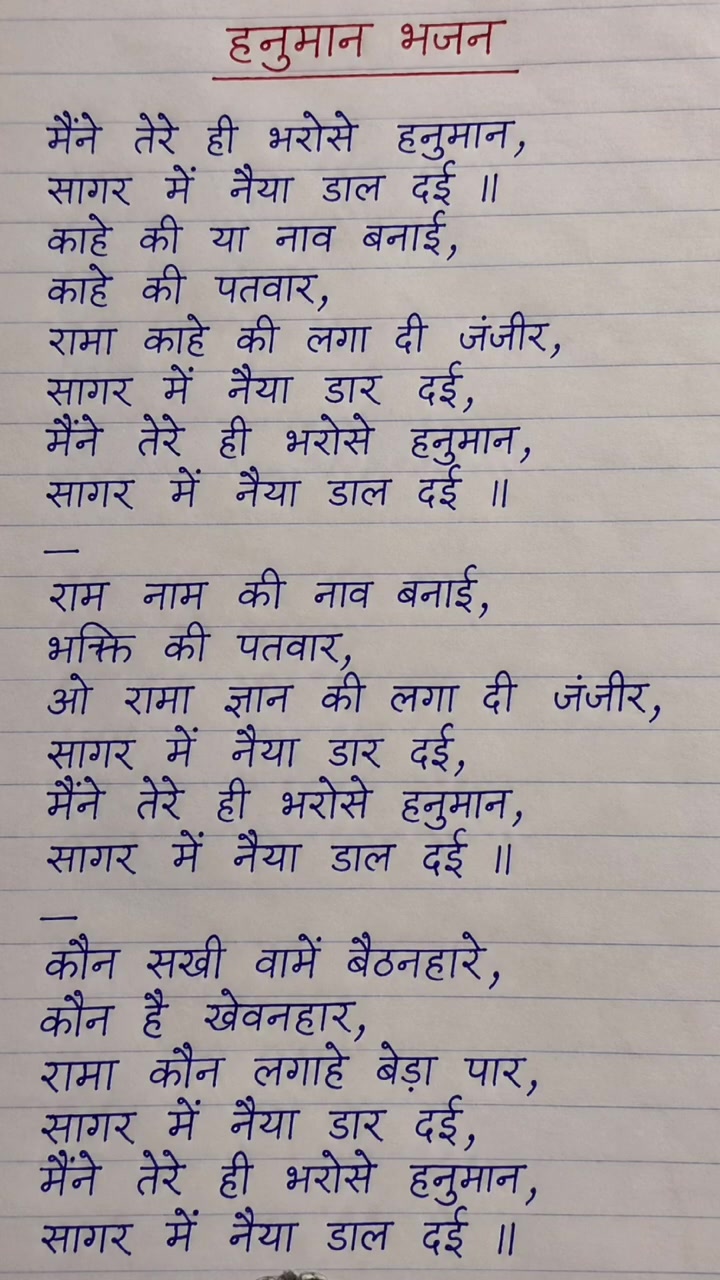 हनुमान भजन
मैंने तेरे ही भरोसे हनुमान,
सागर में नैया डाल दई ॥
काहे की या नाव बनाई,
काहे की पतवार,
रामा काहे की लगा दी जंजीर,
सागर में नैया डार दई,
मैंने तेरे ही भरोसे हनुमान,
सागर में नैया डाल दई ॥
—
राम नाम की नाव बनाई,
भक्ति की पतवार,
ओ रामा ज्ञान की लगा दी जंजीर,
सागर में नैया डार दई,
मैंने तेरे ही भरोसे हनुमान,
सागर में नैया डाल दई ॥
—
कौन सखी वामें बैठनहारे,
कौन है खेवनहार,
रामा कौन लगाहे बेड़ा पार,
सागर में नैया डार दई,
मैंने तेरे ही भरोसे हनुमान,
सागर में नैया डाल दई ॥